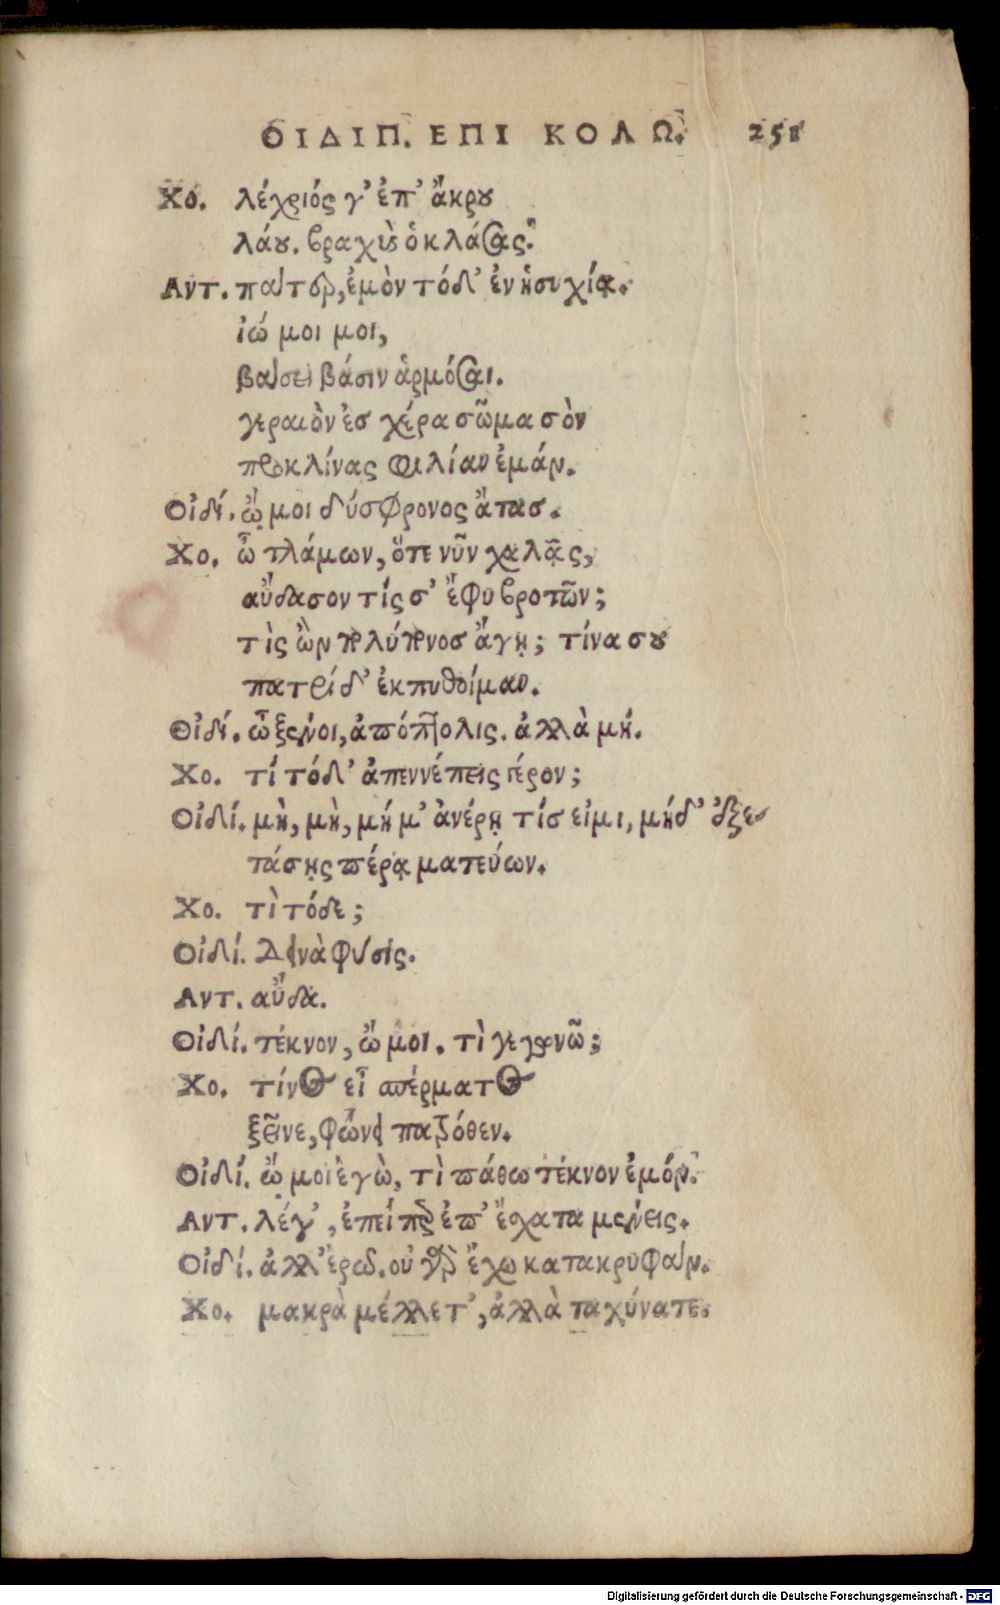 ΟΙΔΙΠ. ΕΠΙ ΚΟΛΩ. 251
Χο. λέχριός γ' ἐπ' ἄκρου
λάου. βραχὺς ὀκλάσας.
Αντ. πάτερ, ἐμὸν τόδ' ἐν ἡσυχίᾳ.
ἰώ μοι μοι,
βάσει βάσιν ἁρμόσαι.
γεραιὸν ἐσ χέρα σῶμα σὸν
προκλίνας φιλίαν ἐμάν.
Οἰδί. ᾤ μοι δύσφρονος ἄτασ.
Χο. ὦ τλάμων, ὅτε νῦν χαλᾷς,
αὔδασον τίς σ' ἔφυ βροτῶν;
τὶς ὢν πολύπονοσ ἄγῃ; τίνα σου
πατρίδ' ἐκπυθοίμαν.
Οἰδί. ὦ ξένοι, ἀπόπολις. ἀλλὰ μή.
Χο. τί τόδ' ἀπεννέπεις γέρον;
Οἰδί. μὴ, μὴ, μή μ' ἀνέρῃ τίσ εἰμι, μήδ' ἐξε-
τάσῃς πέρᾳ ματεύων.
Χο. τὶ τόδε;
Οἰδί. Δεινὰ φύσις.
Αντ. αὔδα.
Οἰδί. τέκνον, ὤ μοι. τὶ γεγωνῶ;
Χο. τίνος εἶ σπέρματος
ξεῖνε, φώνει πατρόθεν.
Οἰδί. ᾤ μοι ἐγὼ, τὶ πάθω τέκνον ἐμόν.
Αντ. λέγ', ἐπείπερ ἐπ' ἔσχατα μένεις.
Οἰδί. ἀλλ' ἐρῶ. οὐ γὰρ ἔχω κατακρυφάν.
Χο. μακρὰ μέλλετ', ἀλλὰ ταχύνατε.
Digitalisierung gefördert durch die Deutsche Forschungsgemeinschaft - DFG